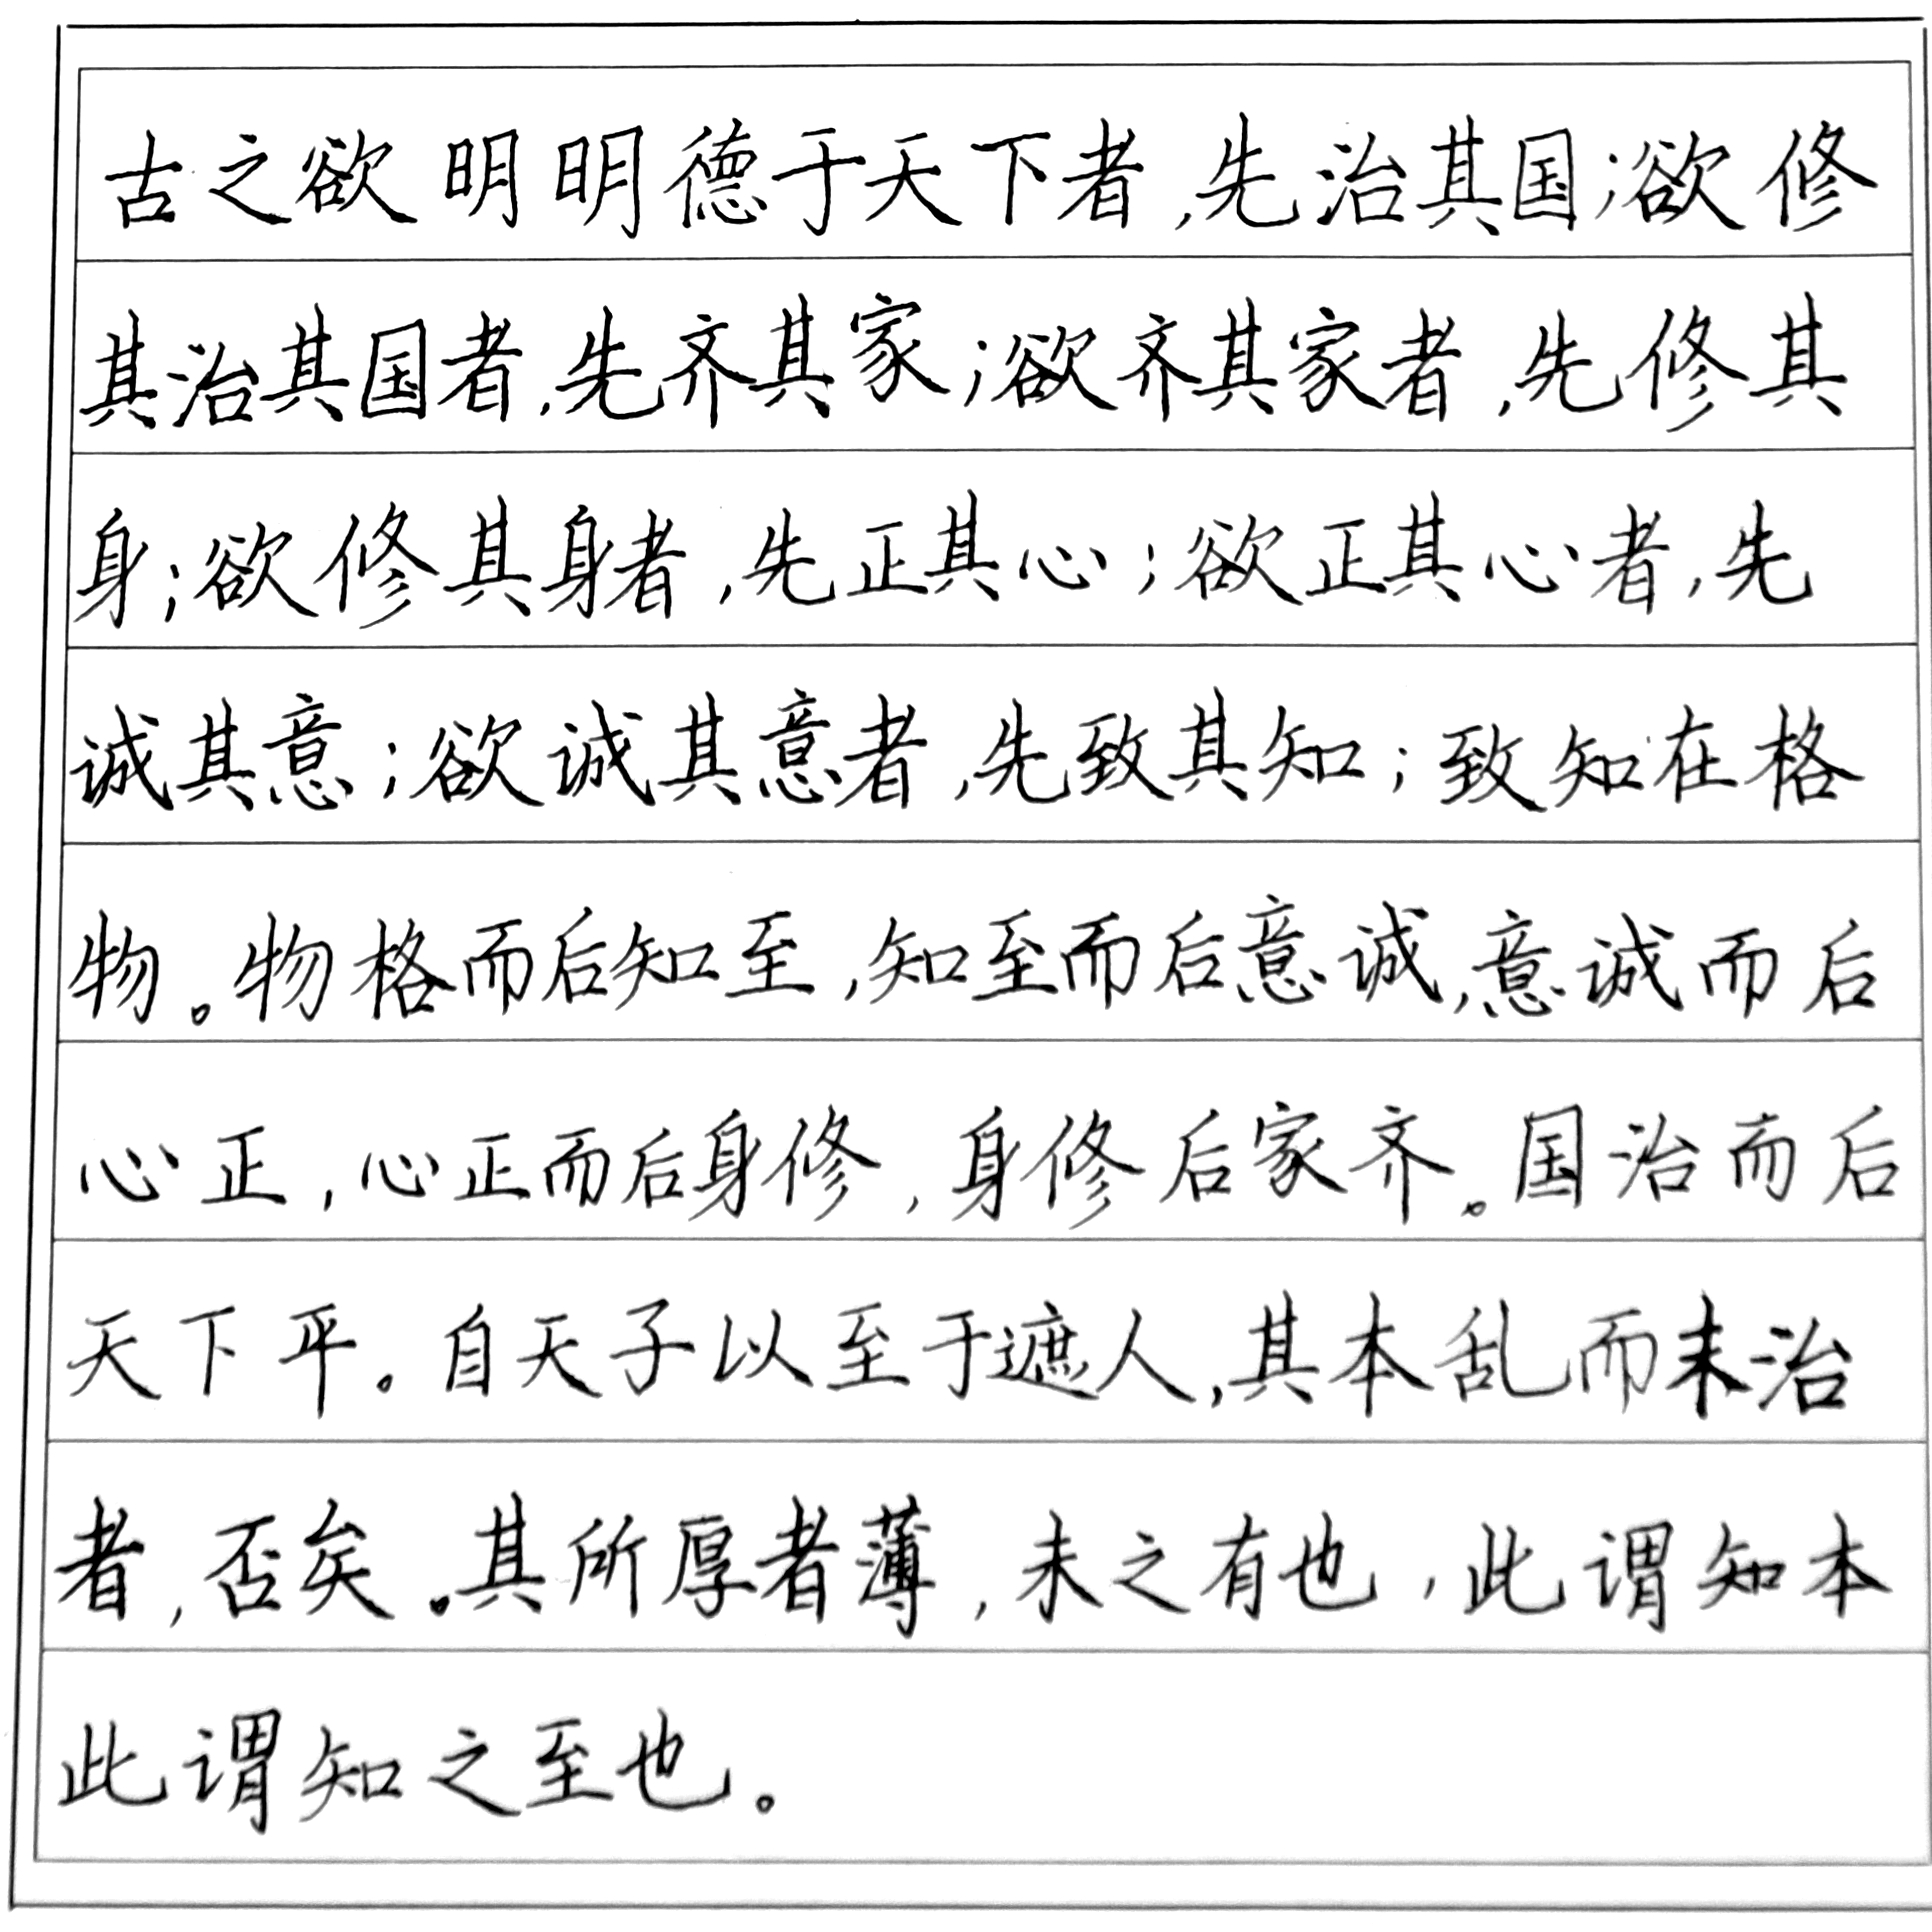 古之欲明明德于天下者,先治其国;欲修
其治其国者,先齐其家;欲齐其家者,先修其
身;欲修其身者,先正其心;欲正其心者,先
诚其意;欲诚其意者,先致其知;致知在格
物。物格而后知至,知至而后意诚,意诚而后
心正,心正而后身修,身修后家齐。国治而后
天下平。自天子以至于遮人,其本乱而末治
者,否矣。其所厚者薄,未之有也,此谓知本
此谓知之至也。